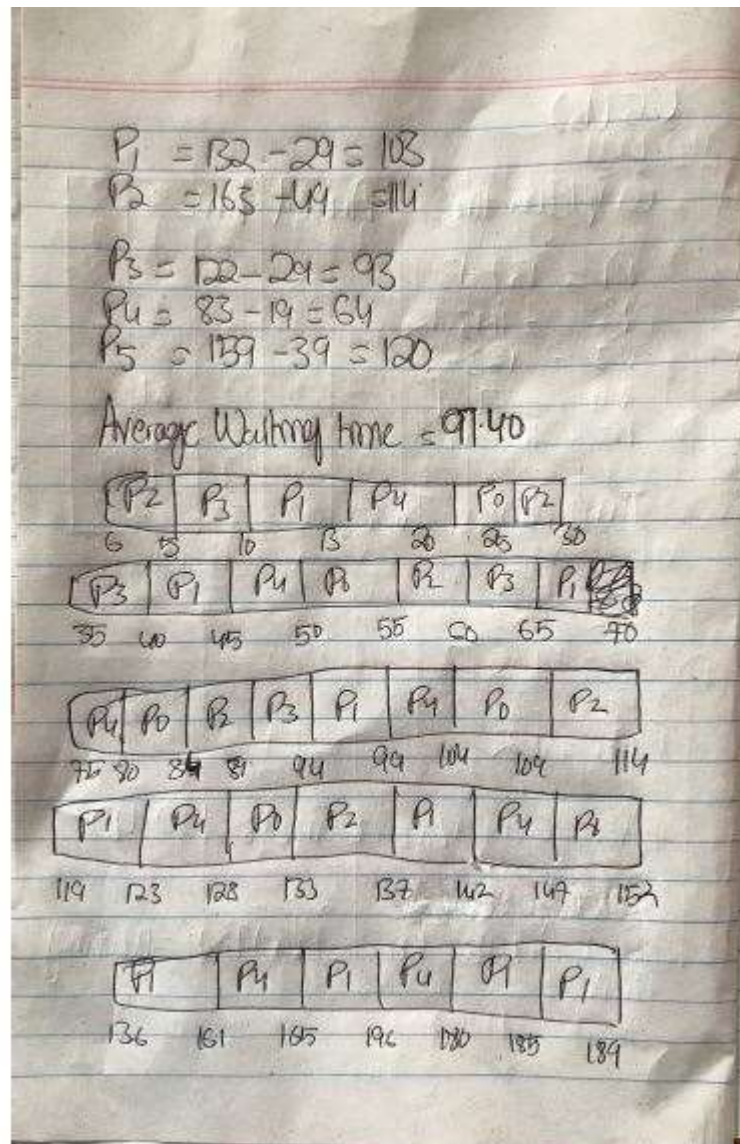 P1 = 132 - 29 = 103
P2 = 163 - 49 = 114
P3 = 122 - 29 = 93
P4 = 83 - 19 = 64
P5 = 159 - 39 = 120
Average Waiting time = 97.40
P2 P3 P1 P4 P0 P2
5 10 20 25 30
P3 P1 P4 P0 P2 P3 P1
35 40 45 50 55 60 65 70
P4 P0 P2 P3 P1 P4 P0 P2
75 80 94 99 104 109 114
P1 P4 P0 P2 P1 P4
119 123 128 133 137 142 147 152
P1 P4 P1 P4 P1 P1
136 161 165 180 185 189